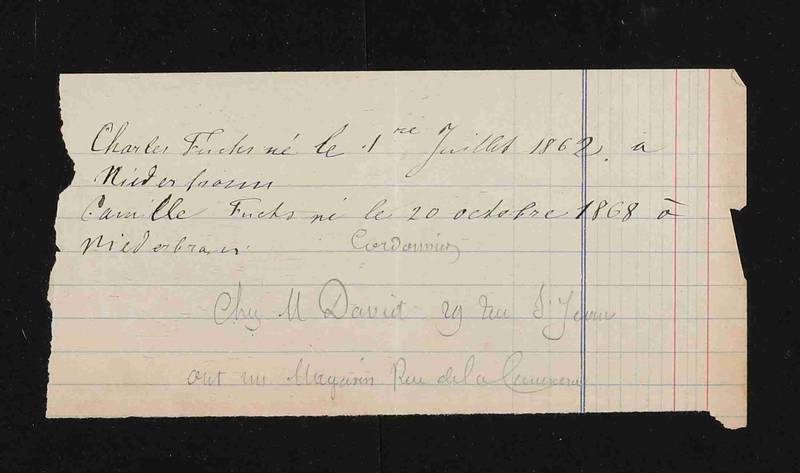 Charles Fuchs né le 1re Juillet 1862 a
Niederbronn
Camille Fuchs né le 20 octobre 1868 à
Niederbronn Cordonnier
Chez M David 29 rue St Jean
ont un Magasin Rue de la